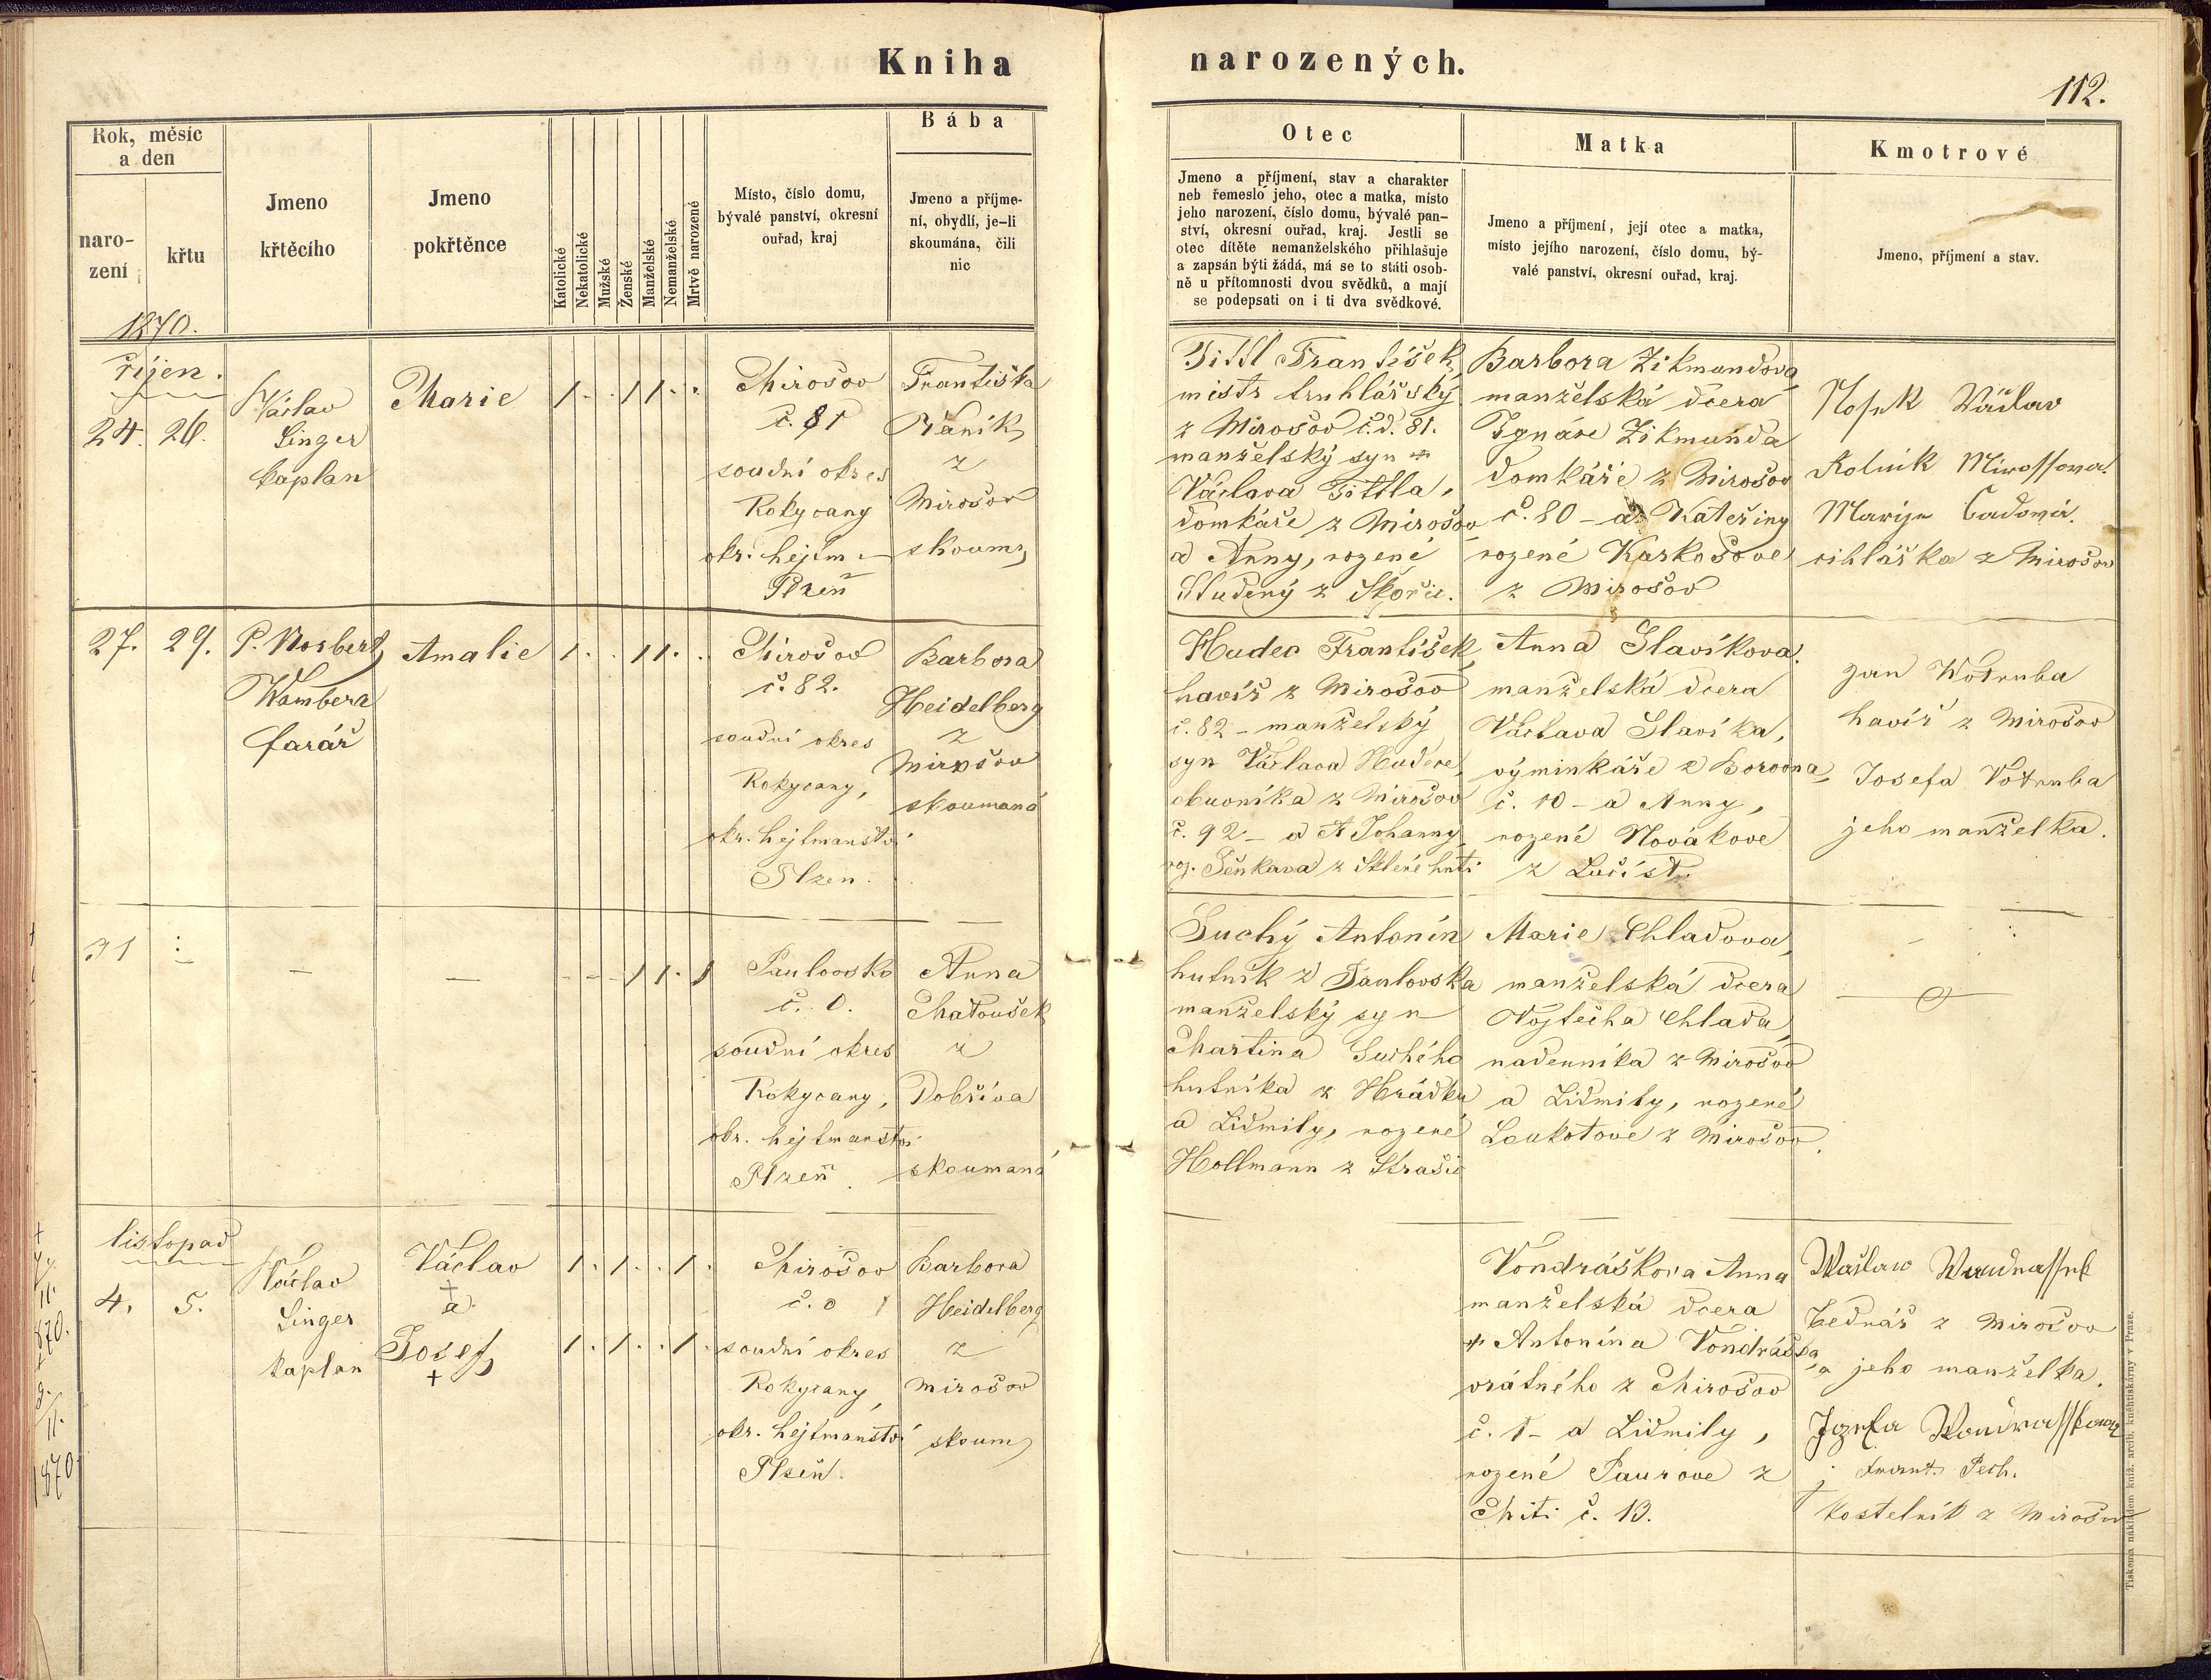 Kniha narozených.
112.
Rok, měsíc
a den
naro-
zení
křtu
Jmeno
křtěcího
Jmeno
pokřtěnce
Katolické
Nekatolické
Mužské
Ženské
Manželské
Nemanželské
Mrtvě narozené
Místo, číslo domu,
bývalé panství, okresní
ouřad, kraj
Bába
Jmeno a příjme-
ní, obydlí, je-li
skoumána, čili
nic
Otec
Jmeno a příjmení, stav a charakter
neb řemeslo jeho, otec a matka, místo
jeho narození, číslo domu, bývalé pan-
ství, okresní ouřad, kraj. Jestli se
otec dítěte nemanželského přihlašuje
a zapsán býti žádá, má se to státi osob-
ně u přítomnosti dvou svědků, a mají
se podepsati on i ti dva svědkové.
Matka
Jmeno a příjmení, její otec a matka,
místo jejího narození, číslo domu, bý-
valé panství, okresní ouřad, kraj.
Kmotrové
Jmeno, příjmení a stav.
1870.
říjen.
24. 26.
Václav
Singer
kaplan
Marie
1 . . 1 1 . .
Mirošov
č. 81
soudní okres
Rokycany
okr. hejtm
Plzeň
Františka
z
Mirošov
skoum
Tittl František
mistr truhlářský
z Mirošov č.d. 81.
manželský syn
Václava Tittla,
domkáře z Mirošov
a Anny, rozené
Studený z Skořic.
Barbora Zikmundova
manželská dcera
Ignáce Zikmunda
domkáře z Mirošov
č. 80 - a Kateřiny
rozené Karkošove
z Mirošov
Václav
Rolnik Mirossova
z Mirošov
27. 29.
P. Norbert
Wambera
farář
Amalie
1 . . 1 1 . .
Mirošov
č. 82.
soudní okres
Rokycany,
okr. hejtmanství
Plzen.
Barbora
Heidelberg
z
Mirošov
skoumaná
Hudec František
havíř z Mirošov
č. 82 - manželský
syn Václava Hudce,
obuvníka z Mirošov
č. 92 - a Johanny
roz. z Sklené huti
Anna Slavíkova.
manželská dcera
Václava Slavíka,
výminkáře z Borovna,
č. 10 - a Anny,
rozené Novákove
z Lučišt.
Jan Wotruba
havíř z Mirošov
Josefa Votruba
jeho manželka.
31
-
-
- - - 1 1 . 1
Paulovsko
č. 0.
soudní okres
Rokycany,
okr. hejtmanství
Plzeň.
Anna
Matoušek
z
Dobříva
skoumaná
Suchý Antonín
hutník z Paulovska
manželský syn
Martina Suchého
hutníka z Hrádku
a Lidmily, rozené
Hollmann z Strašic
Marie Chladova
manželská dcera
Vojtěcha Chlada,
nadenníka z Mirošov
a Lidmily, rozené
Loukotove z Mirošov.
listopad
4. 5.
Václav
Singer
kaplan
Václav
+
a
Josef
+
1 . 1 . . 1 .
1 . 1 . . 1 .
Mirošov
č. 0 1
soudní okres
Rokycany,
okr. hejtmanství
Plzeň.
Barbora
Heidelberg
z
Mirošov
skoum
Vondráškova Anna
manželská dcera
Antonína Vondráška,
vrátného z Mirošov
č. 1 - a Lidmily,
rozené Paurove z
Mítí č. 13.
Waclaw
bednář z Mirošov
a jeho manželka.
Jozefa
Frant. Pech.
kostelník z Mirošov
11.
870.
11.
1870
Tiskem a nákladem kníž. arcib. knihtiskárny v Praze.